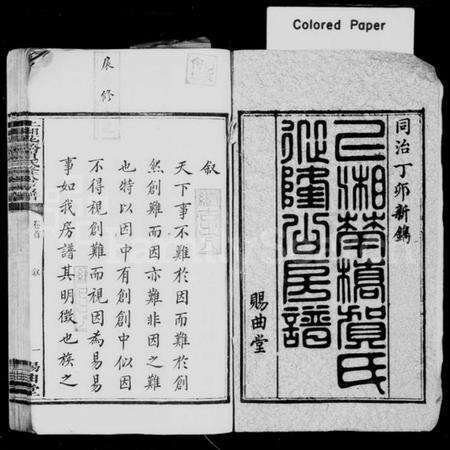 Colored Paper
同治丁卯新鐫
上湘荷橋賀氏
從隆公房譜
賜曲堂
展修
叙
天下事不難於因而難於創
然創難而因亦難非因之難
也特以因中有創創中似因
不得視創難而視因為易易
事如我房譜其明徵也族之
卷首
叙
一
賜曲堂